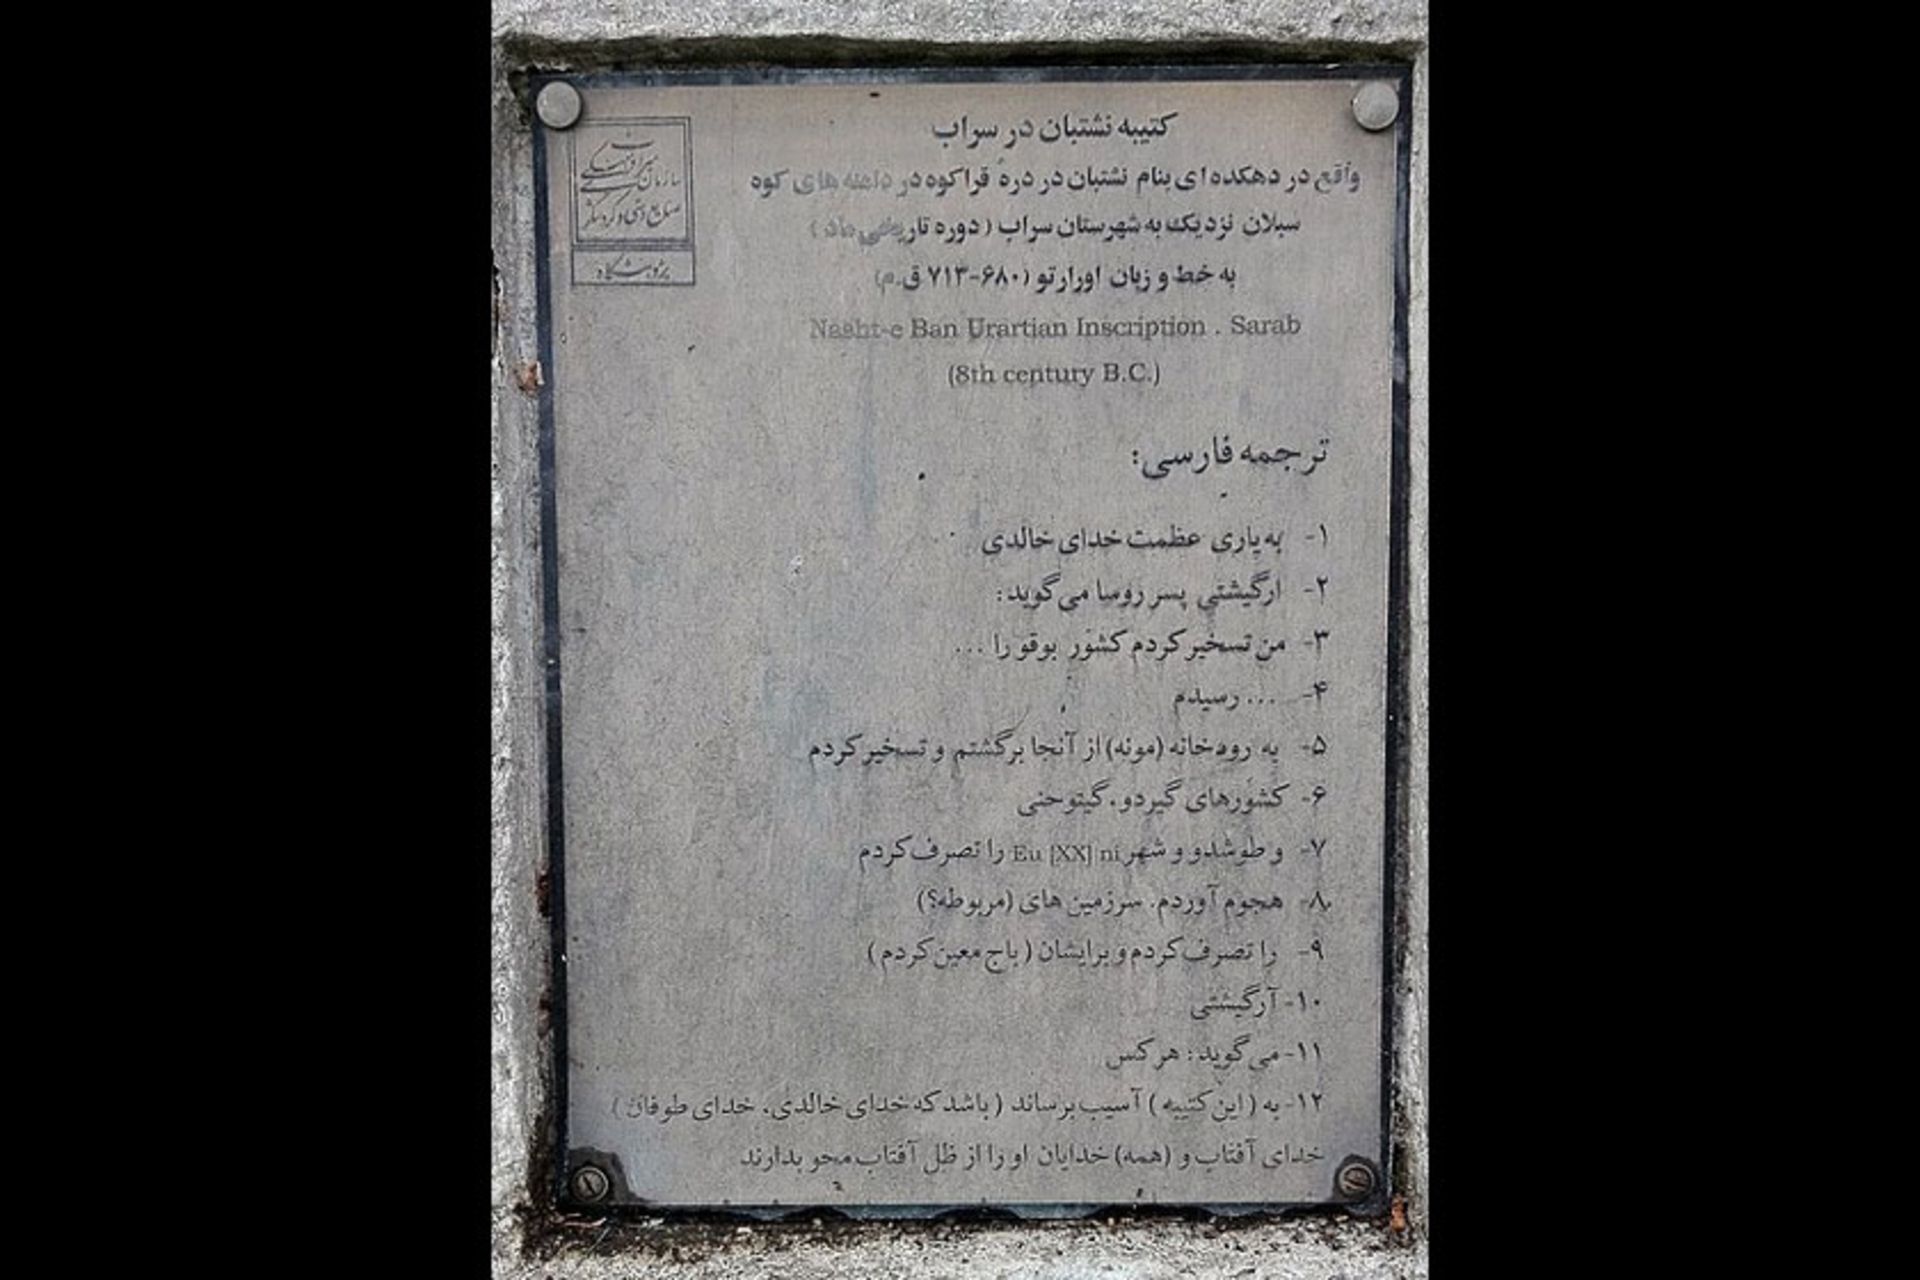 کتیبه نشتبان در سراب
واقع در دهکده ای بنام نشتبان در درهٔ قراکوه در دامنه های کوه
سبلان نزدیک به شهرستان سراب (دوره تاریخی ماد)
به خط و زبان اورارتو (۶۸۰-۷۱۳ ق.م)
Nasht-e Ban Urartian Inscription . Sarab
(8th century B.C.)
سازمان میراث فرهنگی
صنایع دستی و گردشگری
پژوهشگاه
ترجمه فارسی:
۱- به یاری عظمت خدای خالدی
۲- ارگیشتی پسر روسا می گوید:
۳- من تسخیر کردم کشور بوقو را ...
۴- ... رسیدم
۵- به رودخانه (مونه) از آنجا برگشتم و تسخیر کردم
۶- کشورهای گیردو، گیتوحنی
۷- و طوشدو و شهر Eu [XX] ni را تصرف کردم
۸- هجوم آوردم. سرزمین های (مربوطه؟)
۹- را تصرف کردم و برایشان (باج معین کردم)
۱۰- آرگیشتی
۱۱- می گوید: هر کس
۱۲- به (این کتیبه) آسیب برساند (باشد که خدای خالدی، خدای طوفان)
خدای آفتاب و (همه) خدایان او را از ظل آفتاب محو بدارند